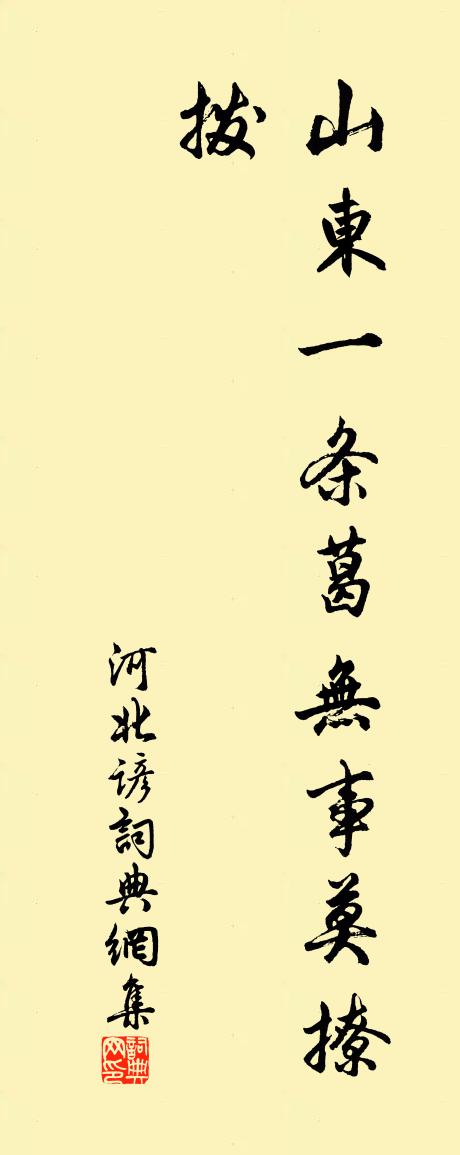 山東一条葛無事莫撩
撥
河北諺詞典網集
詞典
网印